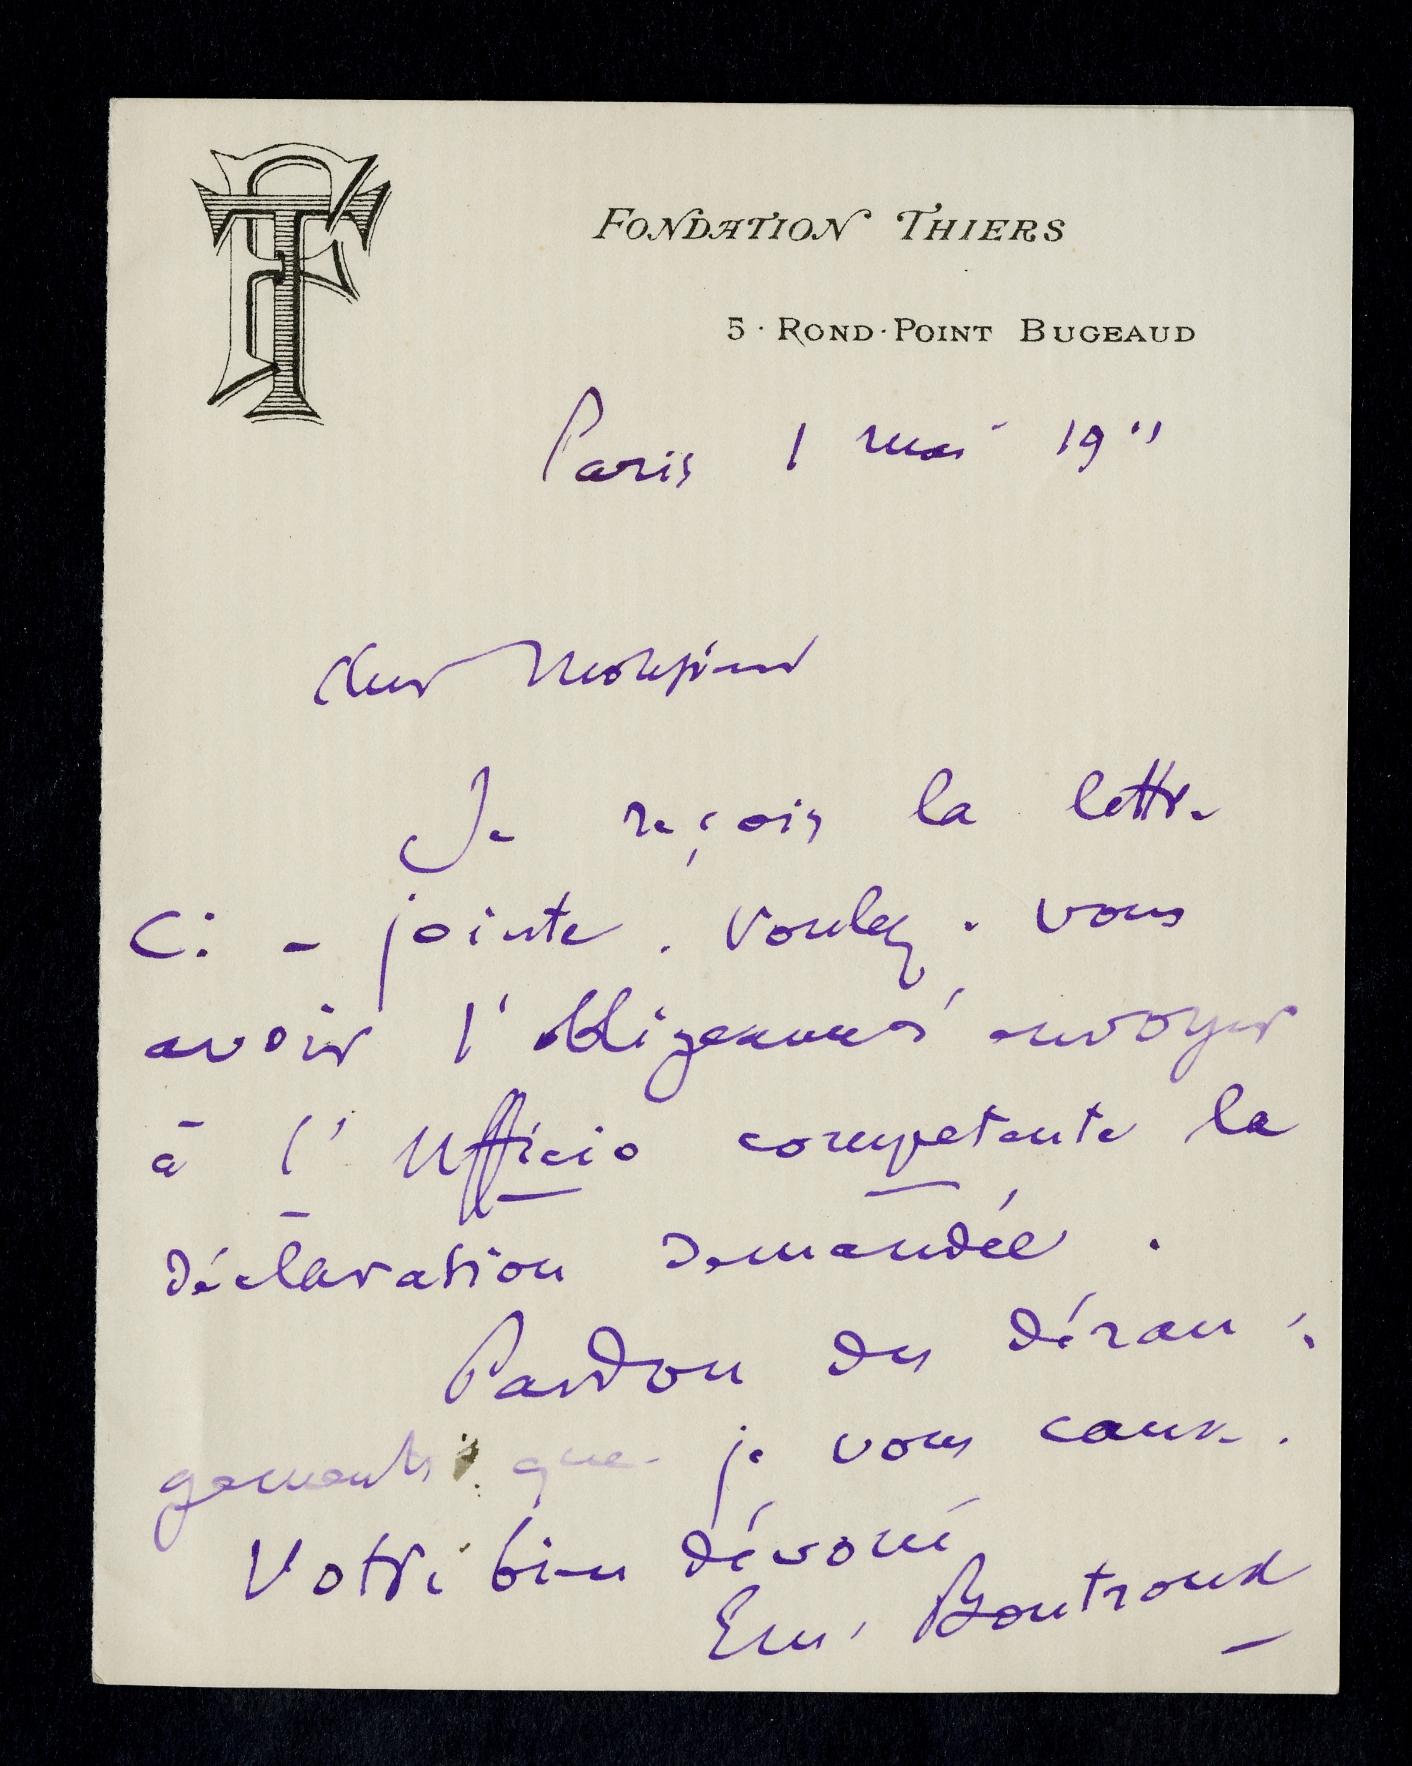 FT
FONDATION THIERS
5 · ROND-POINT BUGEAUD
Paris 1 mai 1911
Cher Monsieur
Je reçois la lettre
ci-jointe. Voulez-vous
avoir l'obligeance d'envoyer
à l'Ufficio competente la
déclaration demandée.
Pardon du déran-
gement que je vous cause.
Votre bien dévoué
Em. Boutroux